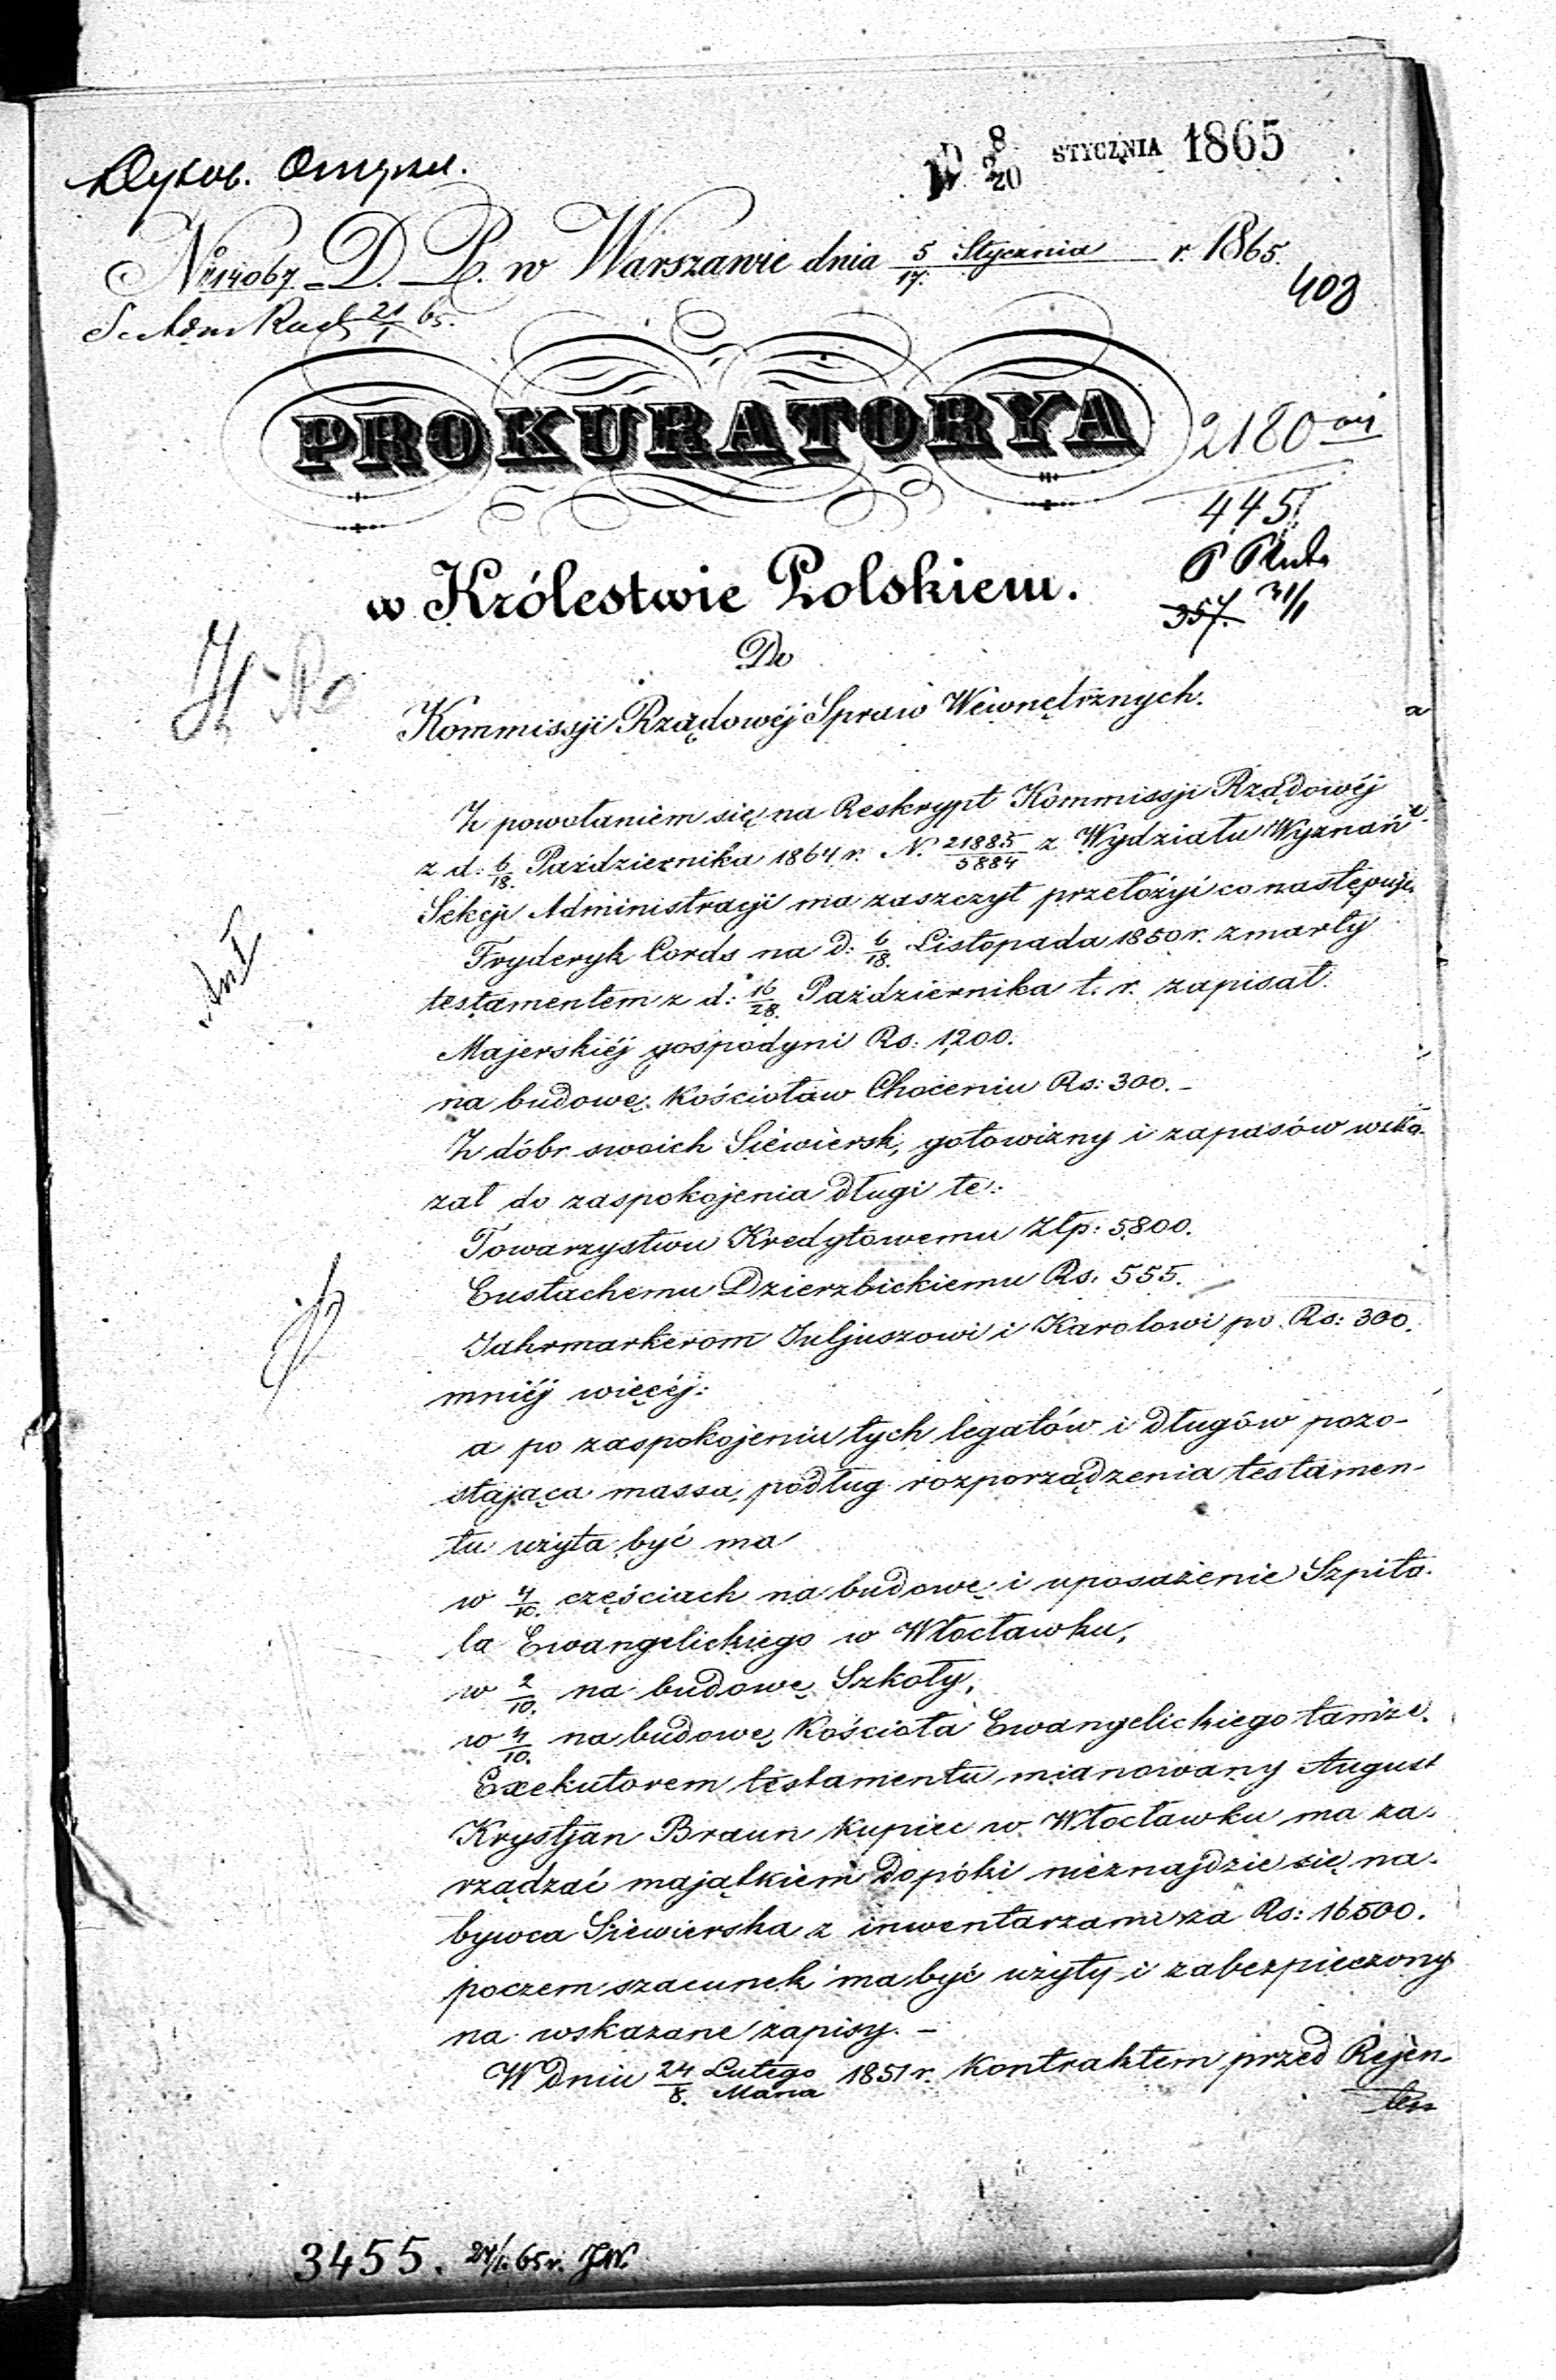 Духов. Отдѣл.
8/20 STYCZNIA 1865
N 14067 D. P. w Warszawie dnia 5/17. Stycznia r. 1865.
403
21/1 65.
PROKURATORYA
2180
445
w Królestwie Polskiem.
357. 31/1
Do
Kommissyi Rządowéj Spraw Wewnętrznych.
Z powołaniem się na Reskrypt Kommissji Rządowéj
z d. 6/18. Października 1864 r. N. 21885/5884 z Wydziału Wyznań
Sekcji Administracji ma zaszczyt przełożyć co następuje.
Fryderyk Cords na d: 6/18. Listopada 1850 r. zmarły
testamentem z d: 16/28. Października t. r. zapisał.
Majerskiéj gospodyni Rs: 1,200.
na budowę Kościoła w Choceniu Rs: 300. –
Z dóbr swoich Siewiersk, gotowizny i zapasów wska-
zał do zaspokojenia długi te:
Towarzystwu Kredytowemu Złp: 5,800.
Eustachemu Dzierzbickiemu Rs. 555.
Jahrmarkerom Juljuszowi i Karolowi po Rs: 300.
mniéj więcéj:
a po zaspokojeniu tych legatów i długów pozo-
stająca massa, podług rozporządzenia testamen-
tu użyta być ma
w 4/10. częściach na budowę i uposażenie Szpita-
la Ewangelickiego w Włocławku,
w 2/10. na budowę Szkoły,
w 4/10. na budowę Kościoła Ewangelickiego tamże.
Exekutorem testamentu mianowany August
Krystjan Braun kupiec w Włocławku ma za-
rządzać majątkiem dopóki nieznajdzie się na-
bywca Siewierska z inwentarzami za Rs: 16,500.
poczem szacunek ma być użyty i zabezpieczony
na wskazane zapisy. –
W dniu 24 Lutego/8. Marca 1851 r. Kontraktem przed Rejen-
tem
3455. 24/1 65 r. JW.